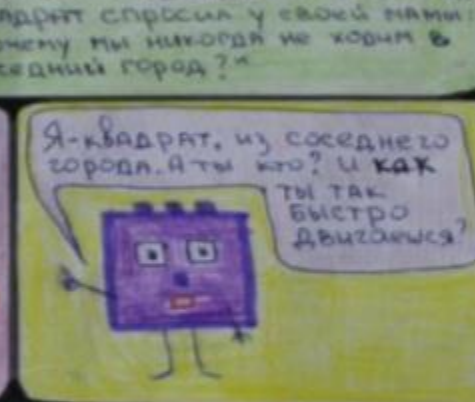 спросил у своей мамы
мы никогда не ходим в
город?"
Я-квадрат, из соседнего
города. А ты кто? И как
ты так
быстро
двигаешься?